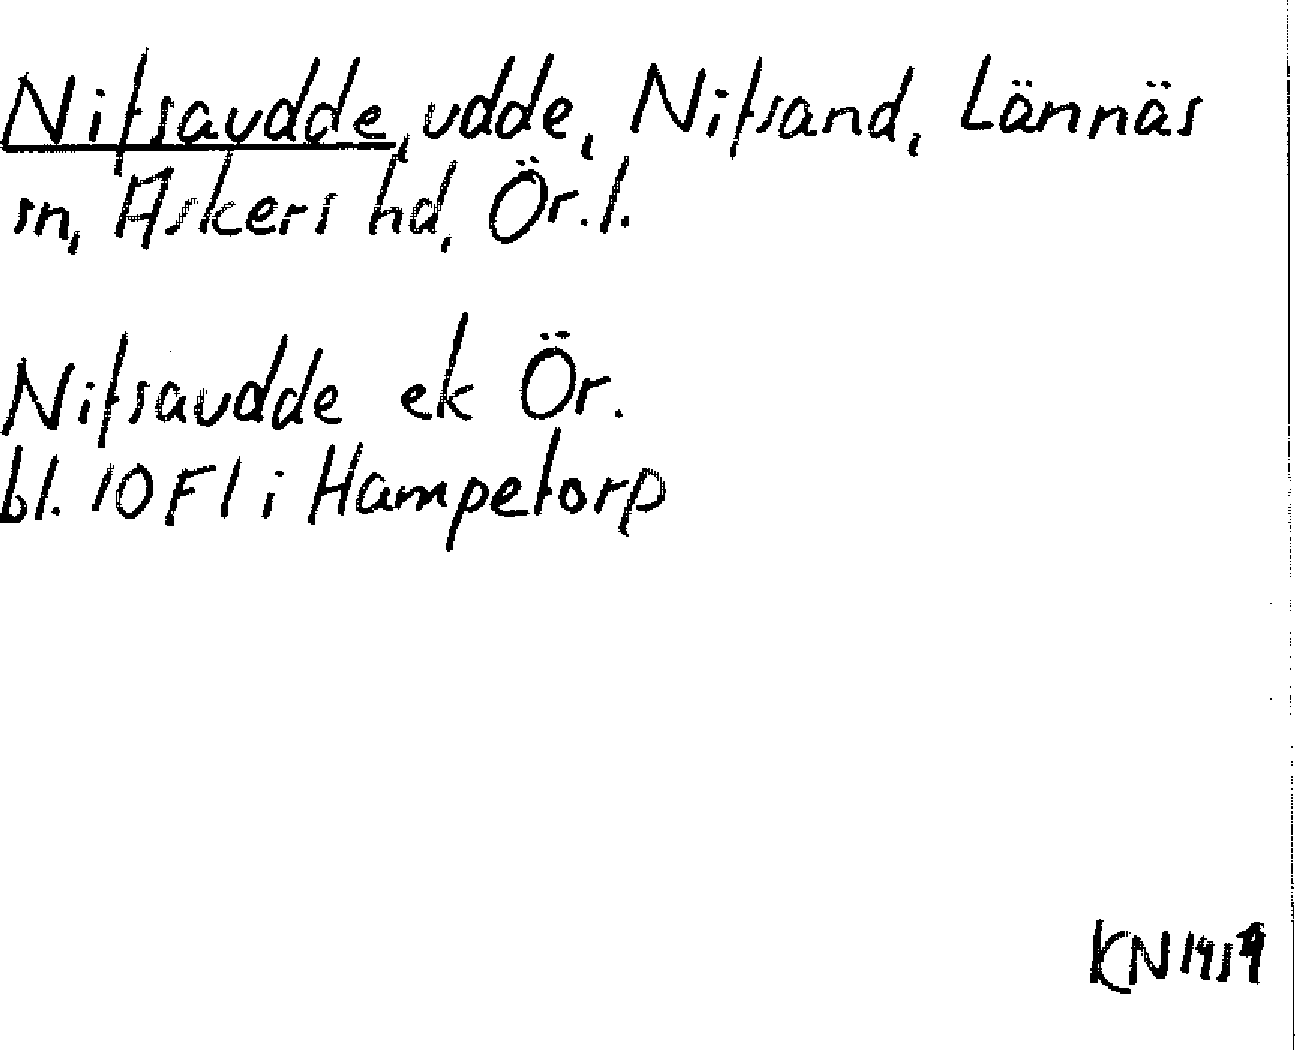 Nitsaudde, udde, Nitsand, Lännäs
sn, Askers hd, Ör. l.
Nitsaudde ek Ör.
bl. 10 F1 i Hampetorp
KN